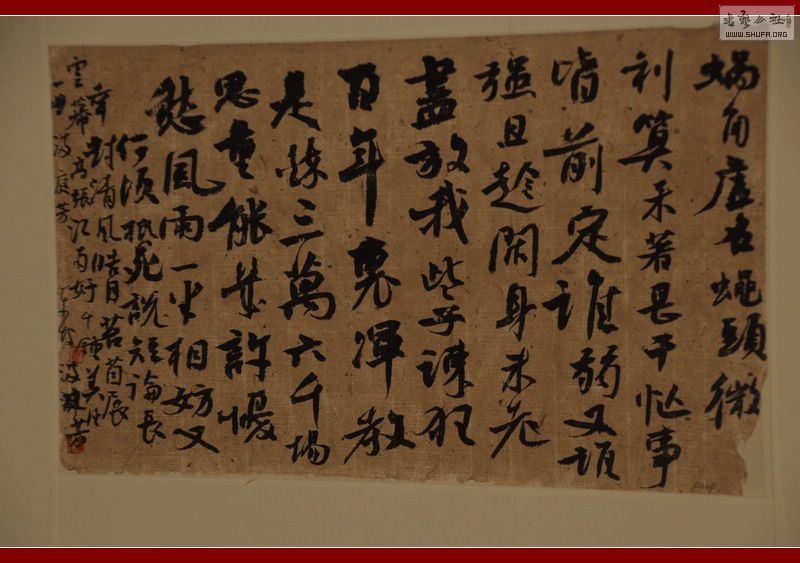 蝸角虛名蠅頭微
利算来著甚干忙事
皆前定誰弱又
强且趁閑身未老
盡放我些子疎狂
百年裏渾教
是醉三萬六千場
思量能幾許憂
愁風雨一半相妨又
何須抵死說短論長
幸對清風皓月苔茵展
雲幕高張江南好千鍾美酒
一曲滿庭芳
WWW.SHUFA.ORG